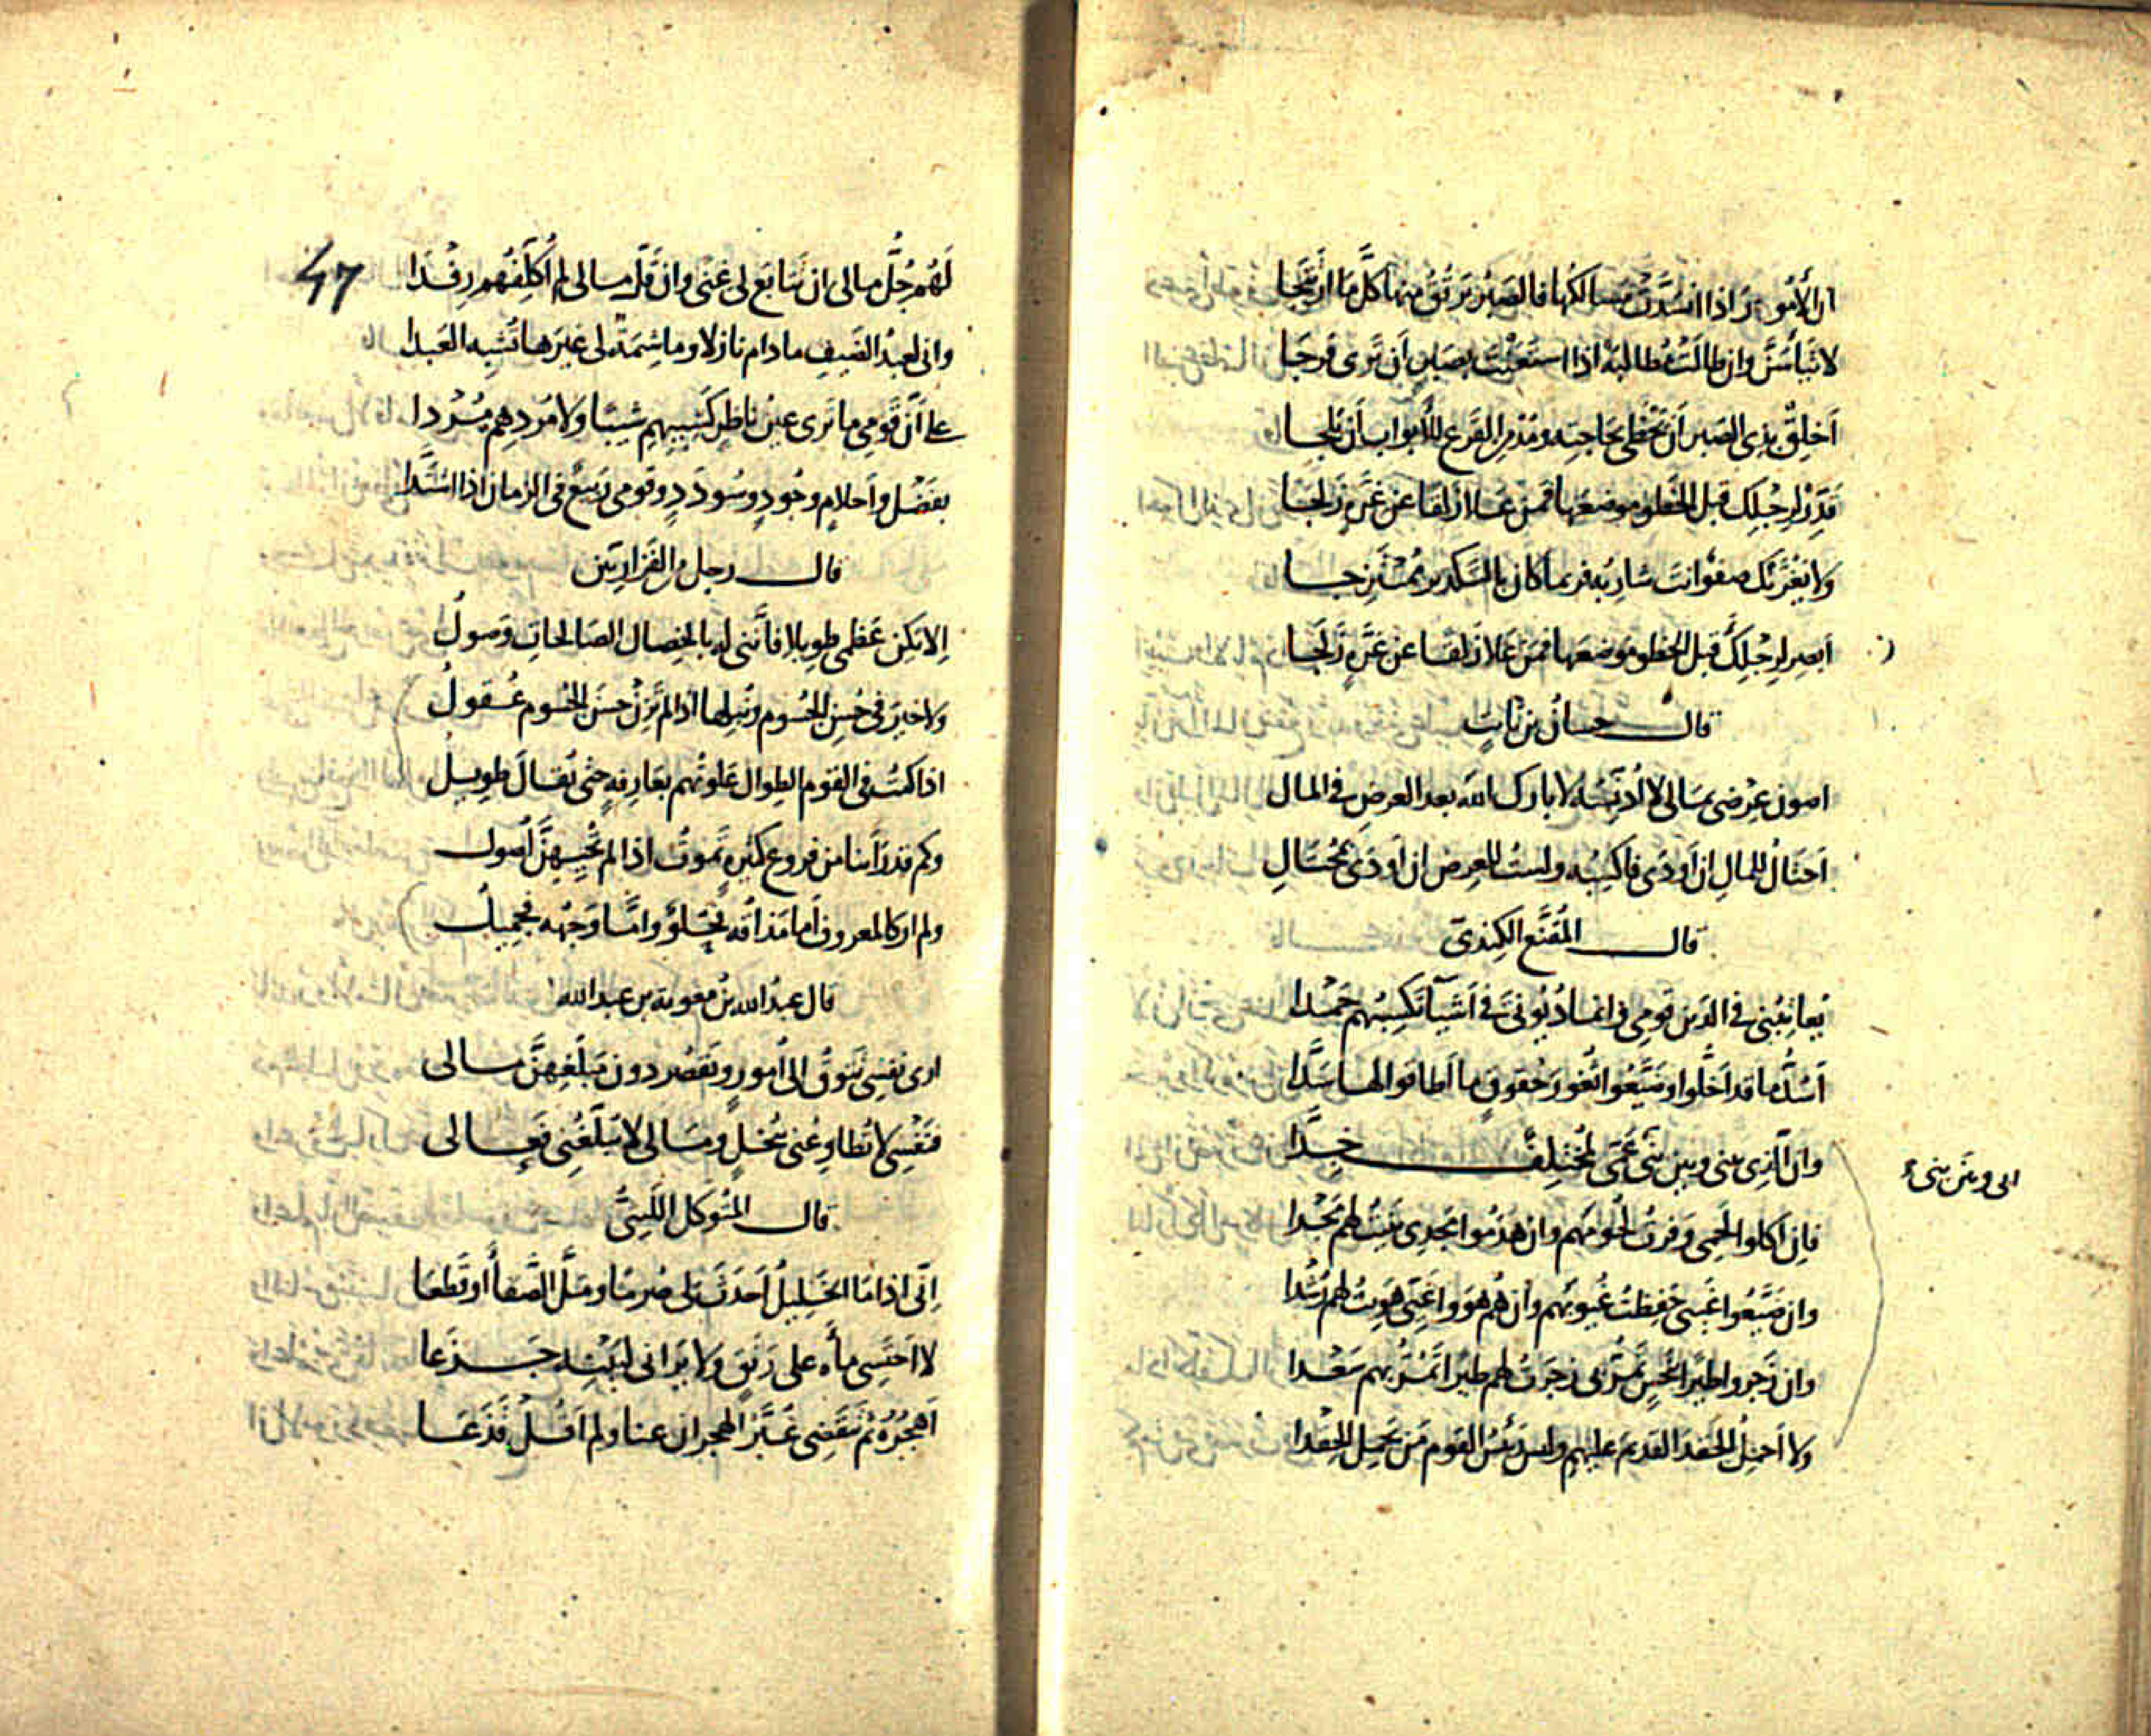 ان الأمور اذا انسدّت مسالكها فالصبر يرتق منها كلّ ما ارتتجا
لا تيأسنّ وان طالت مطالبة اذا استعنت بصبر أن ترى فرجا
أخلق بذى الصبر أن يحظى بحاجته ومدمن القرع للأبواب أن يلجا
قدّر لرجلك قبل الخطو موضعها فمن علا زلقا عن غرّة زلجا
ولا يغرّنك صفو انت شاربه فربما كان بالتكدير ممتزجا
أبصر لرجلك قبل الخطو موضعها فمن علا زلقا عن غرّة زلجا
قال حسان بن ثابت
اصون عرضى بمالى لا أدنّسه لا بارك الله بعد العرض فى المال
أحتال للمال إن أودى فاكسبه ولست للعرض ان أودى بمحتال
قال المقنّع الكندىّ
يعاتبنى فى الدين قومى وانما ديونى فى أشيآ تكسبهم حمدا
أسدّ ما قد اخلّوا وضيّعوا ثغور حقوق ما أطاقوا لها سدّا
وان الّذى بينى وبين بنى عمّى لمختلف جدّا
الى وبين بنى
فان اكلوا لحمى وفرت لحومهم وان هدموا مجدى بنيت لهم مجدا
وان ضيّعوا غيبى حفظت غيوبهم وان هم هووا غيّى هويت لهم رشدا
وان زجروا طيرا بنحس تمرّ بى زجرت لهم طيرا تمرّ بهم سعدا
ولا أحمل الحقد القديم عليهم وليس رئيس القوم من يحمل الحقدا
47
لهم جلّ مالى ان تتابع لى غنى وان قلّ مالى لم أكلّفهم رفدا
وانى لعبد الضيف ما دام نازلا وما شيمة لى غيرها تشبه العبدا
على أنّ قومى ما ترى عين ناظر كشيبهم شيبا ولا مردهم مردا
بفضل وأحلام وجود وسودد وقومى ربيع فى الزمان اذا اشتدّا
قال رجل من الفزاريين
إلا يكن عظمى طويلا فأننى له بالخصال الصالحات وصول
ولا خير فى حسن الجسوم ونبلها اذا لم تزن حسن الجسوم عقول
اذا كنت فى القوم الطوال علوتهم بعارفة حتى يقال طويل
وكم قد رأينا من فروع كثيرة تموت اذا لم تحيهنّ أصول
ولم ار كالمعروف أما مذاقه فحلو وامّا وجهه فجميل
قال عبد الله بن معوية بن عبد الله
ارى نفسى تتوق الى أمور ويقصر دون مبلغهنّ مالى
فنفسى لا تطاوعنى ببخل ومالى لا يبلّغنى فعالى
قال المتوكل الليثىّ
إنّى اذا ما الخليل أحدث لى صرما وملّ الصفأ او قطعا
لا احتسى مأه على رنق ولا يرانى لبينه جزعا
أهجره ثم تنقضى غبّر الهجران عنا ولم اقل قذعا